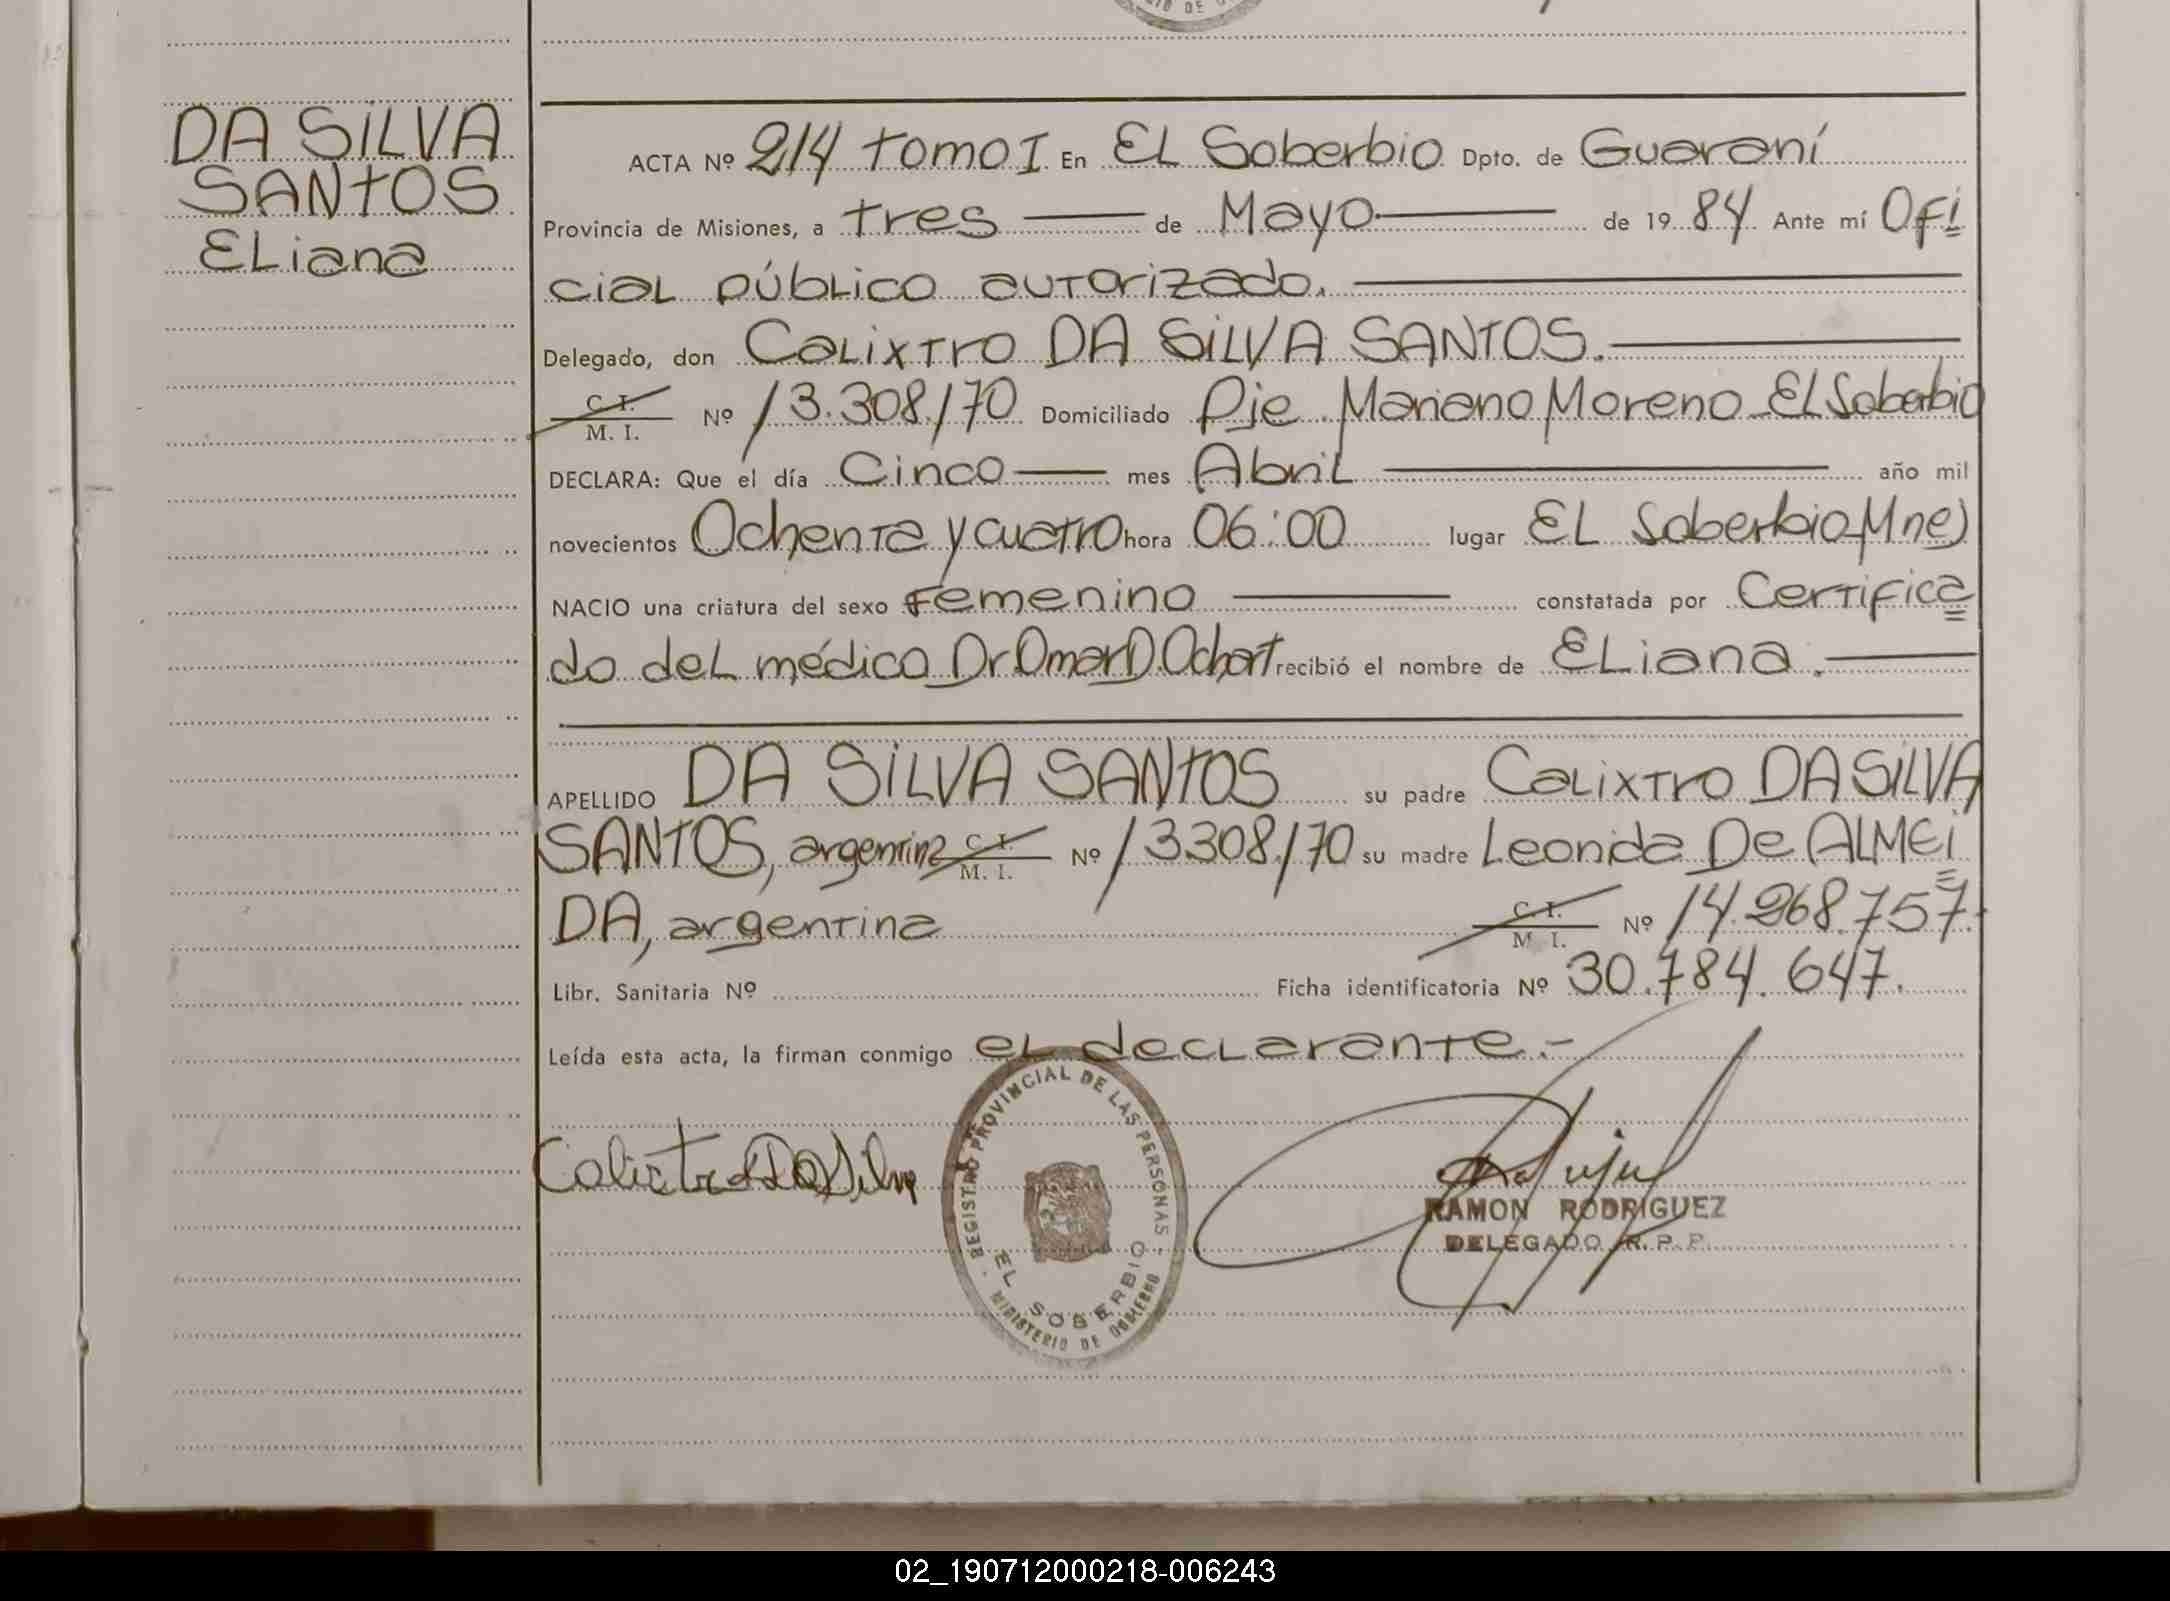 DA SILVA
SANTOS
ELiana
ACTA Nº 214 tomo I En EL Soberbio Dpto. de Guaraní
Provincia de Misiones, a tres de Mayo de 19 84 Ante mí Ofi
cial público autorizado.
Delegado, don Calixtro DA SILVA SANTOS.
C. I. M. I. Nº 13.308.170 Domiciliado Pje Mariano Moreno El Soberbio
DECLARA: Que el día Cinco mes Abril año mil
novecientos Ochenta y cuatro hora 06:00 lugar EL Soberbio Mne)
NACIO una criatura del sexo Femenino constatada por Certifica
do del médico Dr Omar D. Ochart recibió el nombre de ELiana.
APELLIDO DA SILVA SANTOS su padre Calixtro DA SILVA
SANTOS, argentina C. I. M. I. Nº 13308.170 su madre Leonida De ALMEi
DA, argentina C. I. M. I. Nº 14.268.757.
Libr. Sanitaria Nº Ficha identificatoria Nº 30.784.647.
Leída esta acta, la firman conmigo el declarante.-
REGISTRO PROVINCIAL DE LAS PERSONAS
EL SOBERBIO
MINISTERIO DE GOBIERNO
RAMON RODRIGUEZ
DELEGADO R. P. P.
02_190712000218-006243